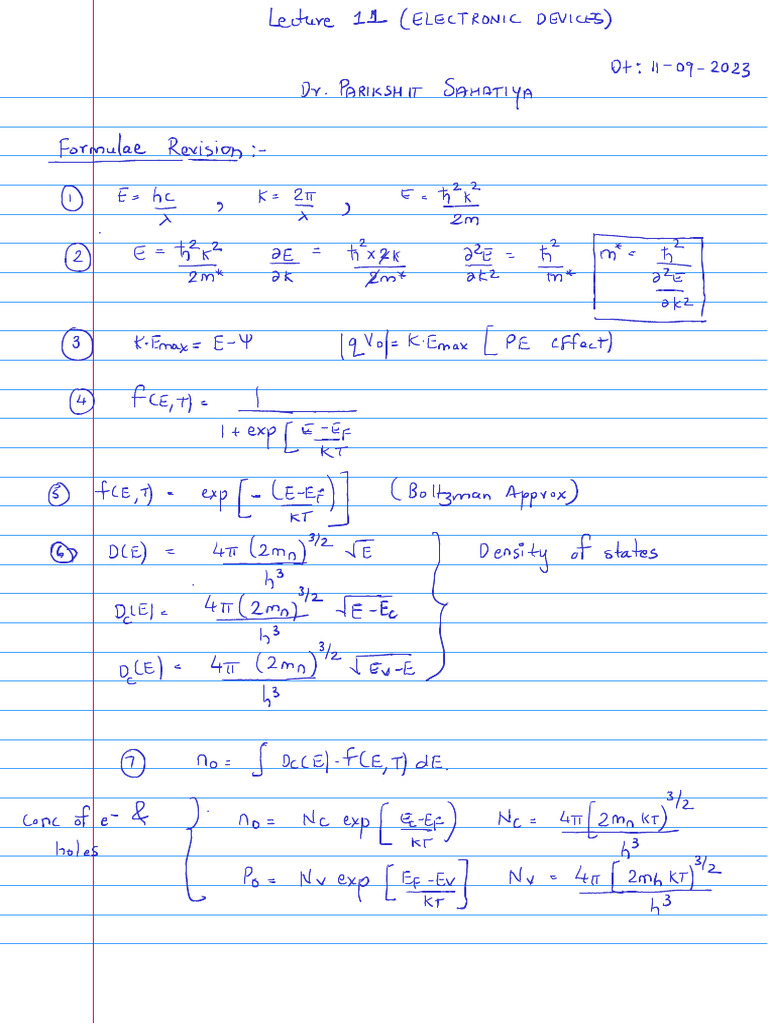 Lecture 11 (ELECTRONIC DEVICES)
Dt: 11-09-2023
Dr. PARIKSHIT SAHATIYA
Formulae Revision:-
① E = hc/λ , K = 2π/λ , E = ħ²k²/2m
② E = ħ²k²/2m* ∂E/∂k = ħ²×2k/2m* ∂²E/∂k² = ħ²/m* m* = ħ²/(∂²E/∂k²)
③ K.Emax = E-Ψ |qV₀| = K.Emax [PE effect)
④ f(E,T) = 1/(1 + exp[(E-E_F)/KT
⑤ f(E,T) = exp[-(E-E_F)/KT)] (Boltzman Approx)
⑥ D(E) = 4π(2mₙ)^3/2/h³ √E Density of states
D_c(E) = 4π(2mₙ)^3/2/h³ √E-E_c
D_c(E) = 4π(2mₙ)^3/2/h³ √E_v-E
⑦ n₀ = ∫ D_c(E)·f(E,T) dE.
Conc of e⁻ & holes
n₀ = N_c exp[(E_c-E_F)/KT) N_c = 4π[2mₙ KT)^3/2/h³
P₀ = N_v exp[(E_F-E_v)/KT] N_v = 4π[2m_h KT)^3/2/h³